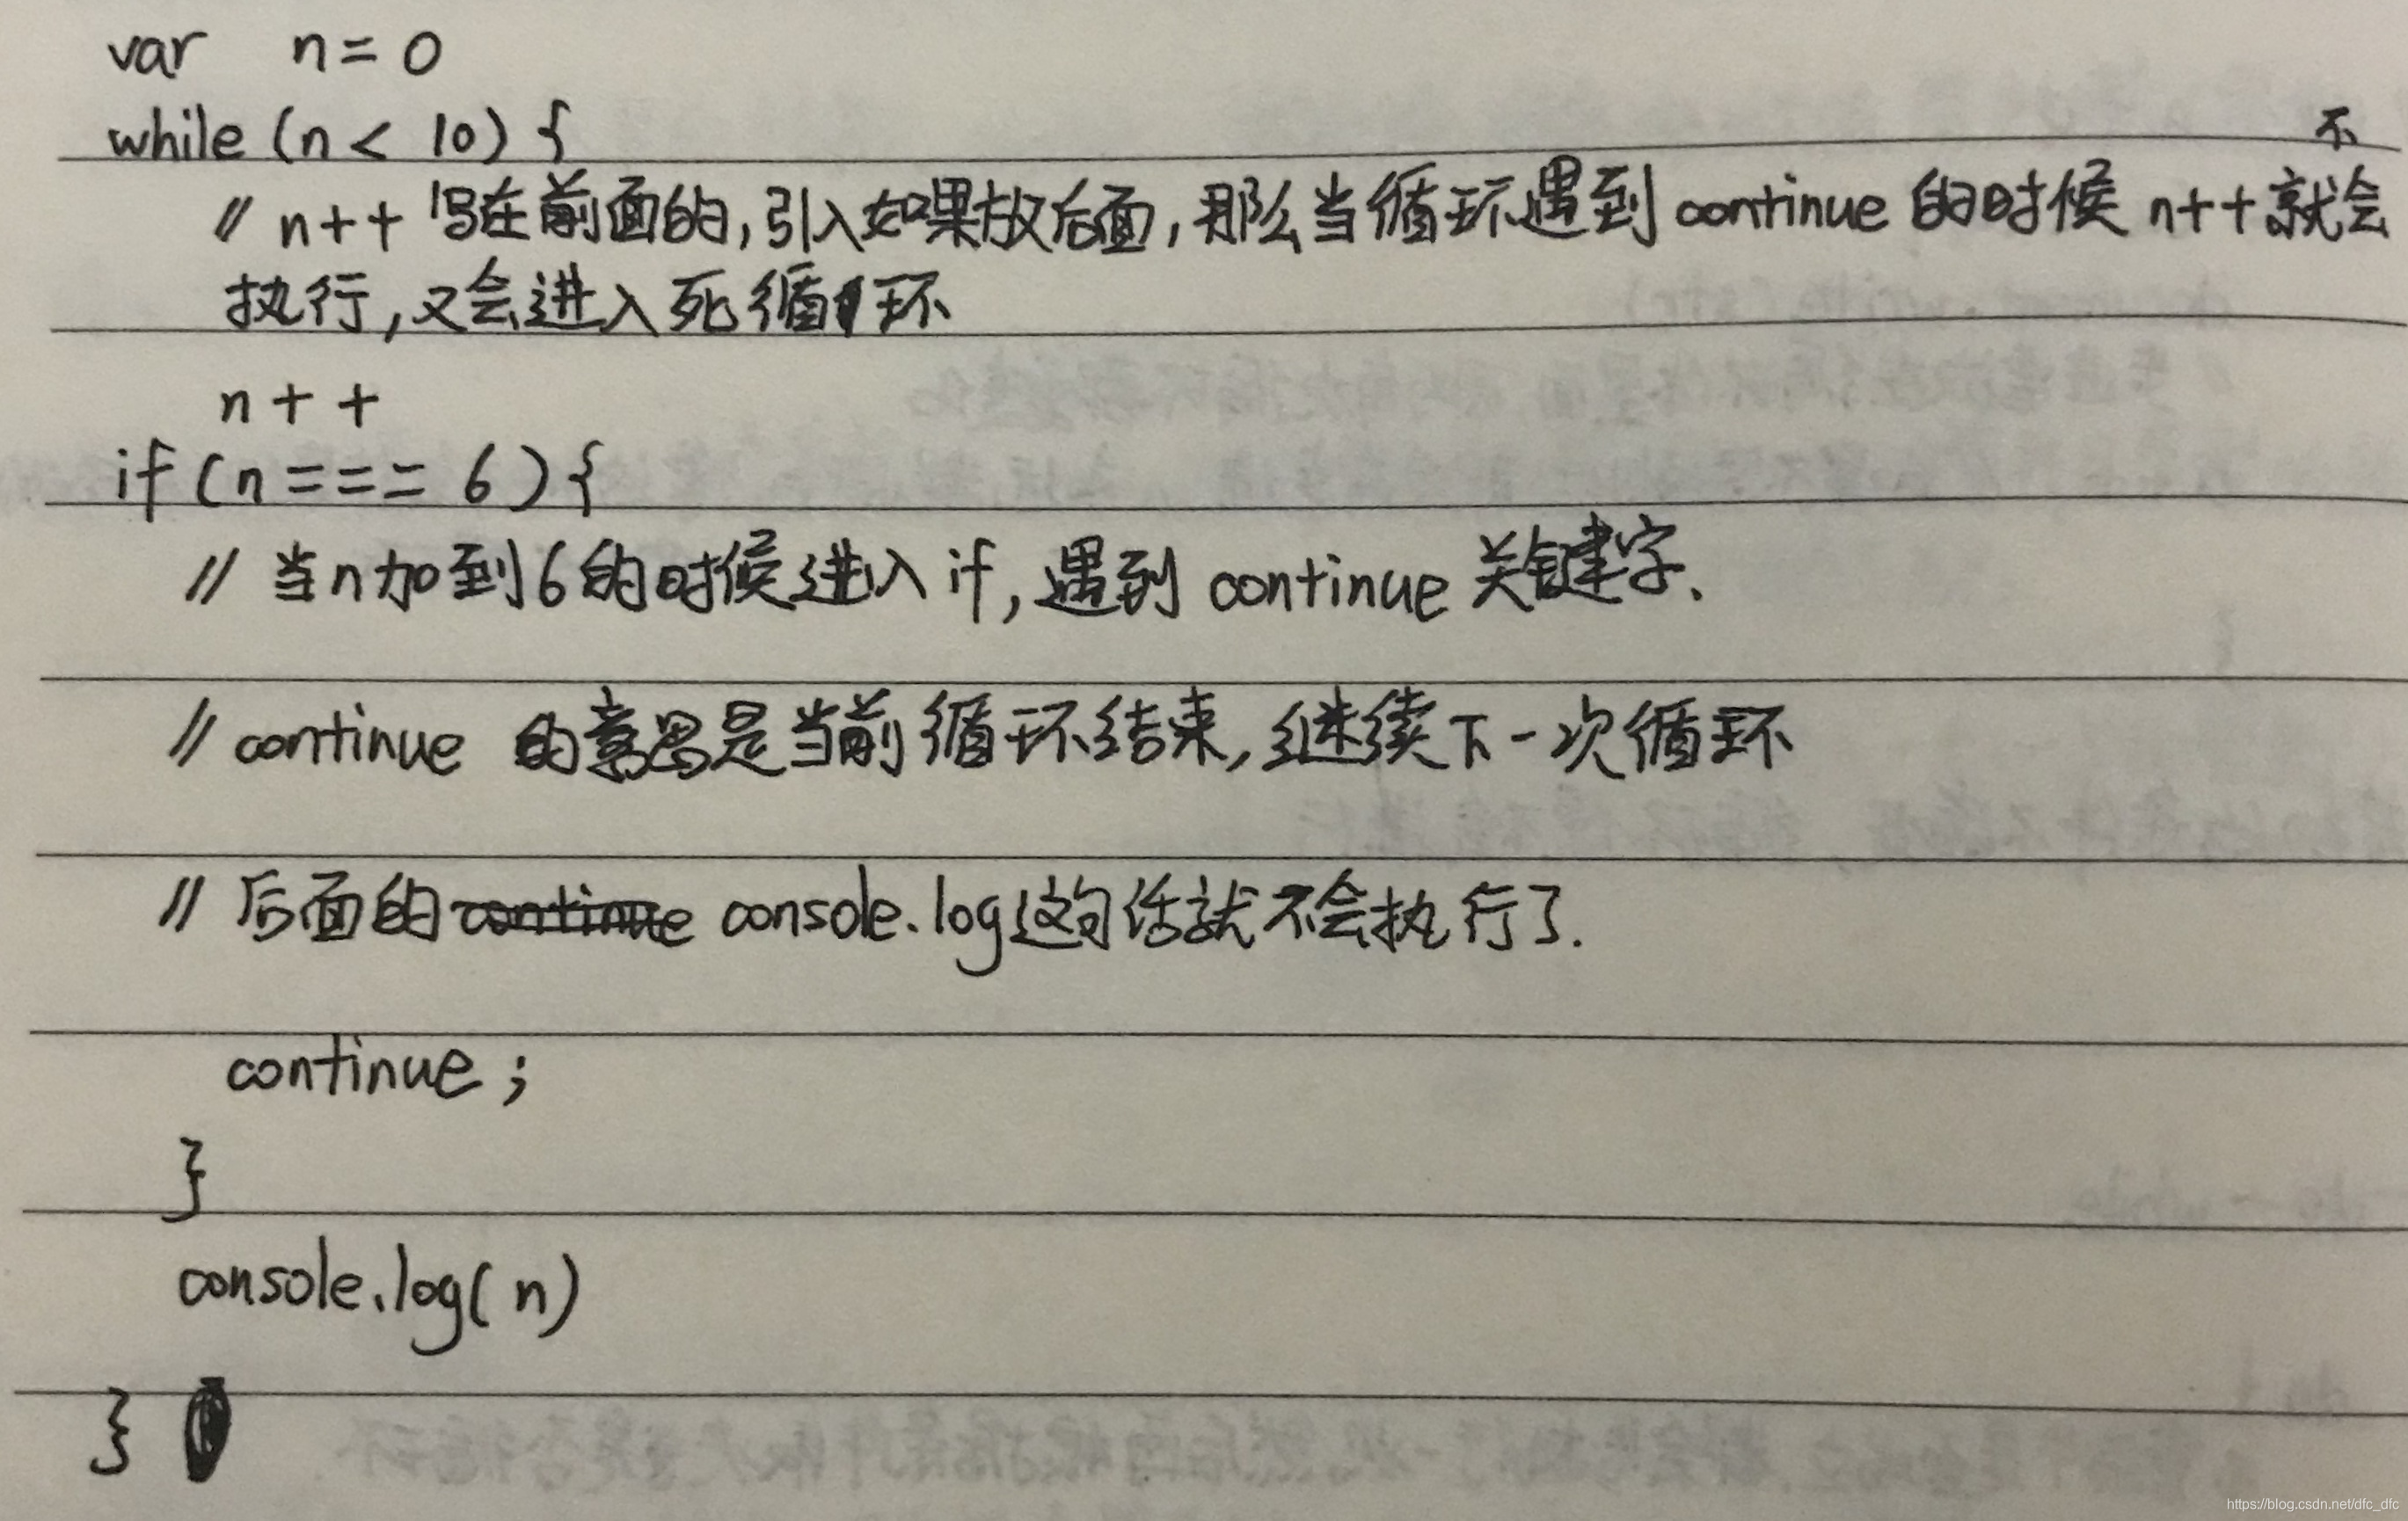 var n = 0
while (n < 10) {
// n++ 写在前面的, 引入如果放后面, 那么当循环遇到 continue 的时候 n++ 就不会
执行, 又会进入死循环
n++
if (n === 6) {
// 当n加到6的时候进入 if, 遇到 continue 关键字.
// continue 的意思是当前循环结束, 继续下一次循环
// 后面的 continue console.log这句话就不会执行了.
continue ;
}
console.log( n)
}
https://blog.csdn.net/dfc_dfc